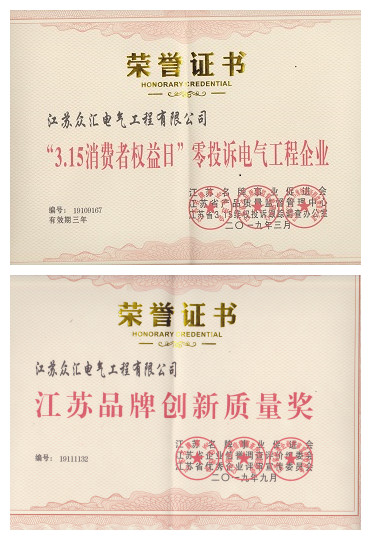 荣誉证书
HONORARY CREDENTIAL
江苏众汇电气工程有限公司
“3.15消费者权益日”零投诉电气工程企业
江苏名牌事业促进会
江苏省产品质量监督管理中心
江苏省3.15维权投诉跟踪监督办公室
编号：19109167
有效期三年
二〇一九年三月
荣誉证书
HONORARY CREDENTIAL
江苏众汇电气工程有限公司
江苏品牌创新质量奖
江苏名牌事业促进会
编号：19111132
二〇一九年九月